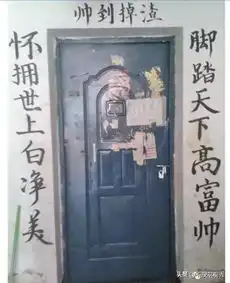 帅到掉渣
脚踏天下高富帅
怀拥世上白净美